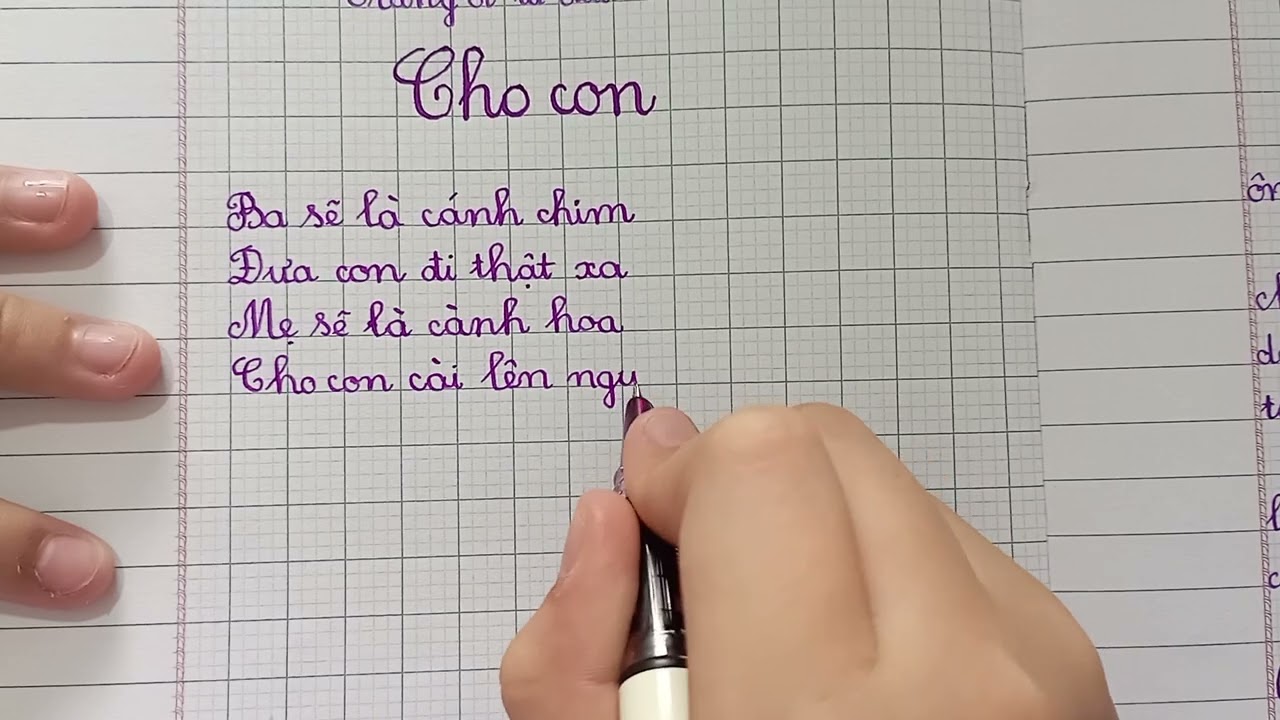 Cho con
Ba sẽ là cánh chim
Đưa con đi thật xa
Mẹ sẽ là cành hoa
Cho con cài lên ngự